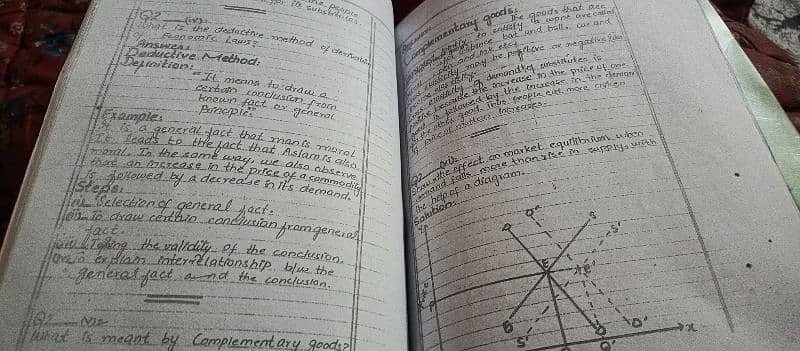 people
its substitutes.
Q2 (iv):
What is the deductive method of deriving
Economic Laws?
Answer:
Deductive Method:
Definition:
"It means to draw a
certain conclusion from
known fact or general
Principle."
Example:
It is a general fact that man is moral
It leads to the fact that Aslam is also
moral. In the same way, we also observe
that an increase in the price of a commodity
is followed by a decrease in its demand.
Steps:
Selection of general fact.
To draw certain conclusion from general
fact.
the validity of the conclusion.
To explain interrelationship b/w the
general fact and the conclusion.
Q2
What is meant by Complementary goods?
Complementary goods:
The goods that are
to satisfy a want are called
bat and ball, car and
may be positive or negative
elasticity of demand of substitutes is
because an increase in the price of one
is followed by the increase in the demand
people eat more chicken
if price of mutton increases.
Q2
Show the effect on market equilibrium when
demand falls more than rise in supply with
the help of a diagram.
Solution:
Y
D
D"
S
S'
E
E'
Price
P
S
S'
D
D'
X
Q
Q'